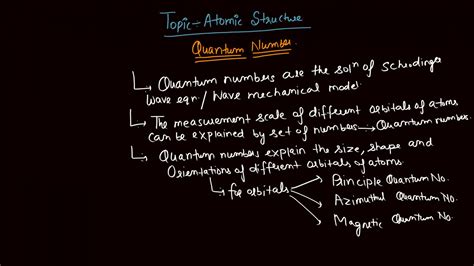 Topic - Atomic Structure
Quantum Number.
Quantum numbers are the solⁿ of Schrodinger
Wave eqn / Wave mechanical model.
The measurement scale of different orbitals of atoms
can be explained by set of numbers → Quantum number.
Quantum numbers explain the size, shape and
Orientations of different orbitals of atoms.
for orbitals
Principle Quantum No.
Azimuthal Quantum No.
Magnetic Quantum No.